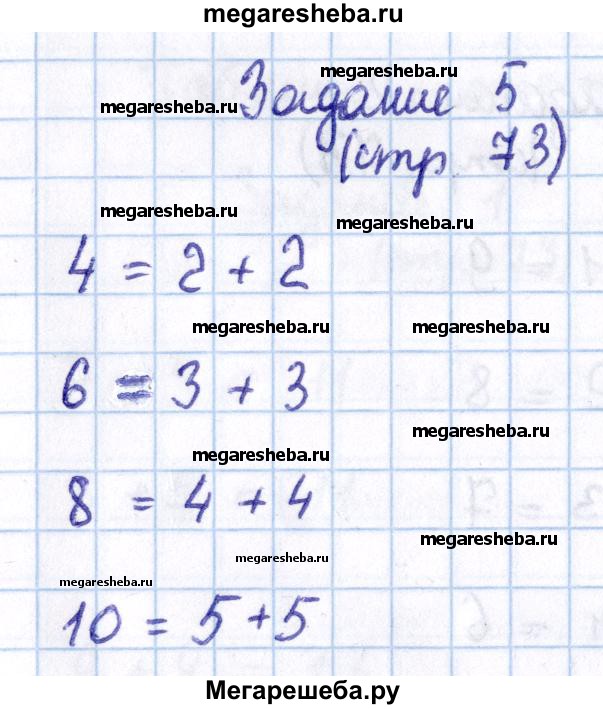 megaresheba.ru
megaresheba.ru
megaresheba.ru
Задание 5
(стр. 73)
megaresheba.ru
megaresheba.ru
4 = 2 + 2
megaresheba.ru megaresheba.ru
6 = 3 + 3
megaresheba.ru
megaresheba.ru
8 = 4 + 4
megaresheba.ru
megaresheba.ru
megaresheba.ru
10 = 5 + 5
Мегарешеба.ру